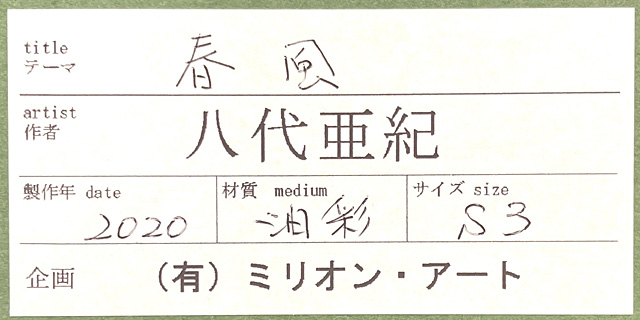 title
テーマ 春風
artist
作者 八代亜紀
製作年 date 材質 medium サイズ size
2020 油彩 S3
企画 （有）ミリオン・アート